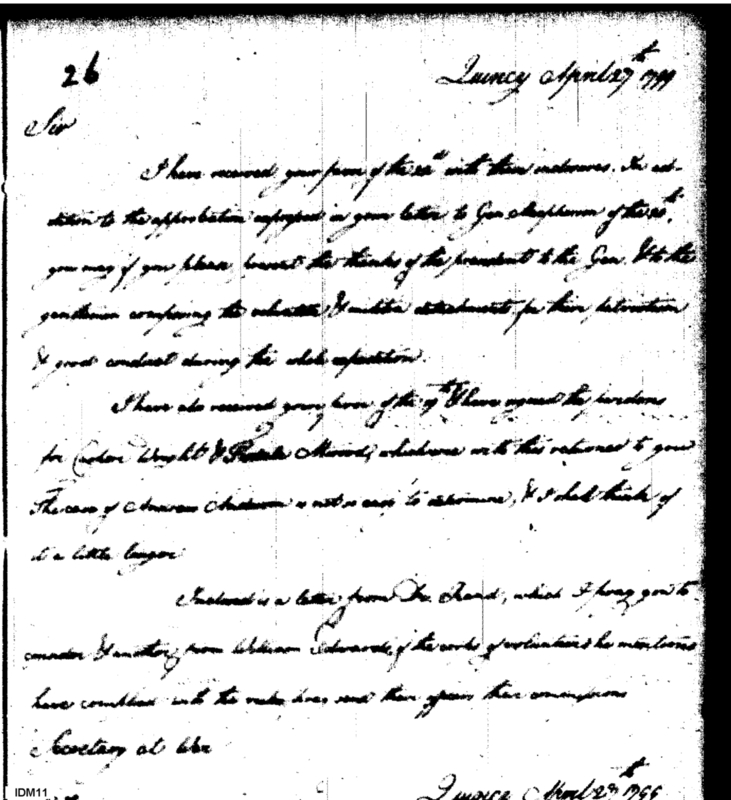 26
Quincy April 27th 1799
Sir
I have received your favor of the with their inclosures. In ad-
dition to the approbation expressed in your letter to Gen Macpherson of the 20th,
you may if you please present the thanks of the president to the Gen. & to the
gentlemen composing the volunteer & militia detachments for their patriotism
& good conduct during the whole expedition.
I have also received your favor of the & have signed the pardons
for Wright & Mirrod, which are with this returned to you
The case of Andrew Anderson is not so easy to determine, & I shall think of
it a little longer
Inclosed is a letter from Dr. Rand, which I pray you to
consider & another from William Edwards, if the corps of volunteers he mentions
have complied with the rules, send their officers their commissions
Secretary at War
Quincy April 1799
IDM11